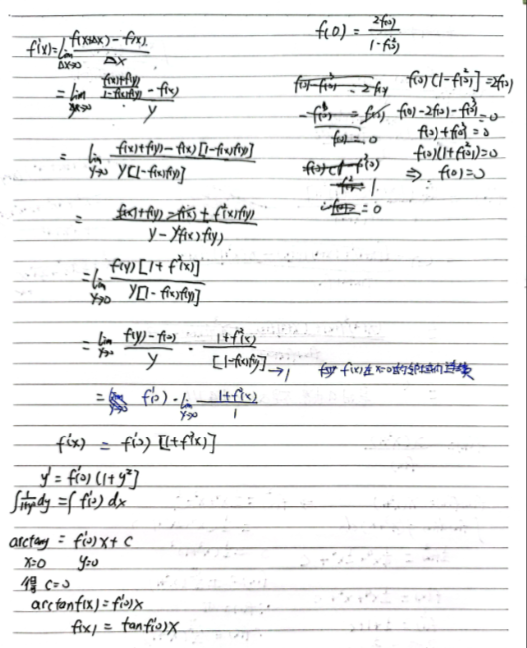 f'(x)=lim Δx→0 (f(x+Δx)-f(x))/Δx
= lim y→0 ((f(x)+f(y))/(1-f(x)f(y)) - f(x))/y
= lim y→0 (f(x)+f(y)-f(x)[1-f(x)f(y)])/(y[1-f(x)f(y)])
= (f(x)+f(y)-f(x)+f²(x)f(y))/(y-yf(x)f(y))
= lim y→0 (f(y)[1+f²(x)])/(y[1-f(x)f(y)])
= lim y→0 (f(y)-f(0))/y · (1+f²(x))/[1-f(x)f(y)] →1
= f'(0)·lim y→0 (1+f²(x))/1
f'(x) = f'(0) [1+f²(x)]
y' = f'(0) (1+y²)
∫ 1/(1+y²) dy = ∫ f'(0) dx
arctany = f'(0)x + C
x=0 y=0
得 C=0
arctanf(x) = f'(0)x
f(x) = tanf'(0)x
f(0) = 2f(0)/(1-f²(0))
f(0) [1-f²(0)] = 2f(0)
f(0)-2f(0)-f³(0)=0
f(0)+f³(0)=0
f(0)(1+f²(0))=0
⇒ f(0)=0